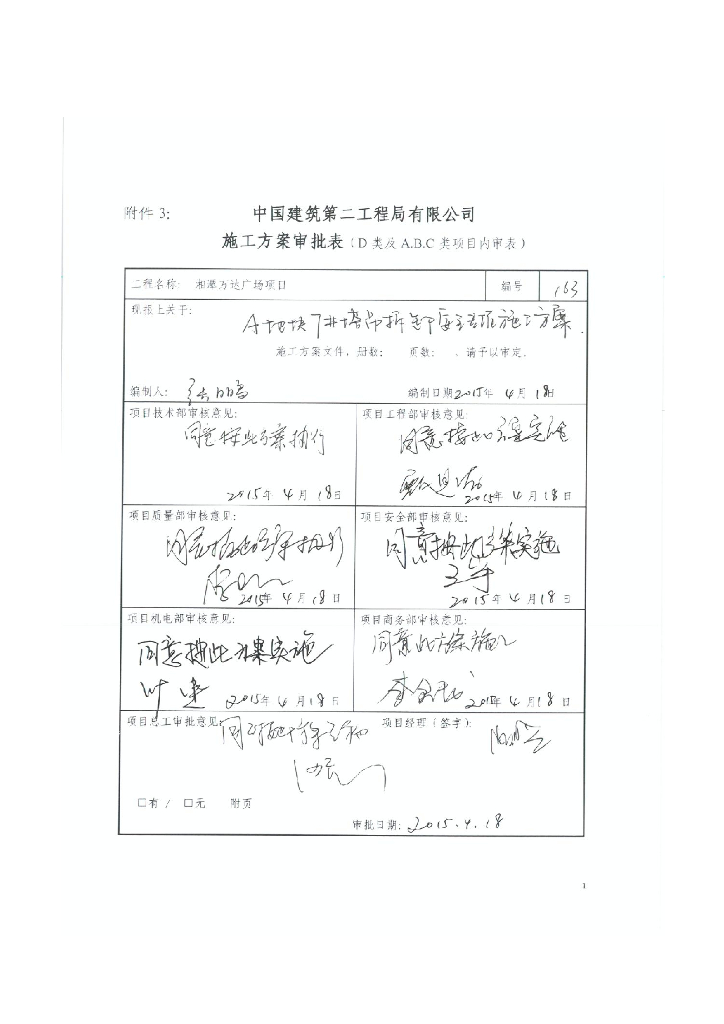 附件 3:
中国建筑第二工程局有限公司
施工方案审批表(D 类及 A.B.C 类项目内审表)
工程名称: 湘潭万达广场项目
编号 163
现报上关于:
A地块7#塔吊拆卸安全施工方案
施工方案文件,册数: 页数: ,请予以审定。
编制人:
编制日期2015年 4月 18日
项目技术部审核意见:
同意按此方案执行
2015年 4月 18日
项目工程部审核意见:
同意按此方案实施
2015年 4月 18日
项目质量部审核意见:
同意按此方案执行
2015年 4月 18日
项目安全部审核意见:
同意按此方案实施
2015年 4月 18日
项目机电部审核意见:
同意按此方案实施
叶建 2015年 4月 18日
项目商务部审核意见:
同意此方案施工
年 4月 18日
项目总工审批意见
项目经理(签字):
□有 / □无 附页
审批日期: 2015.4.18
1